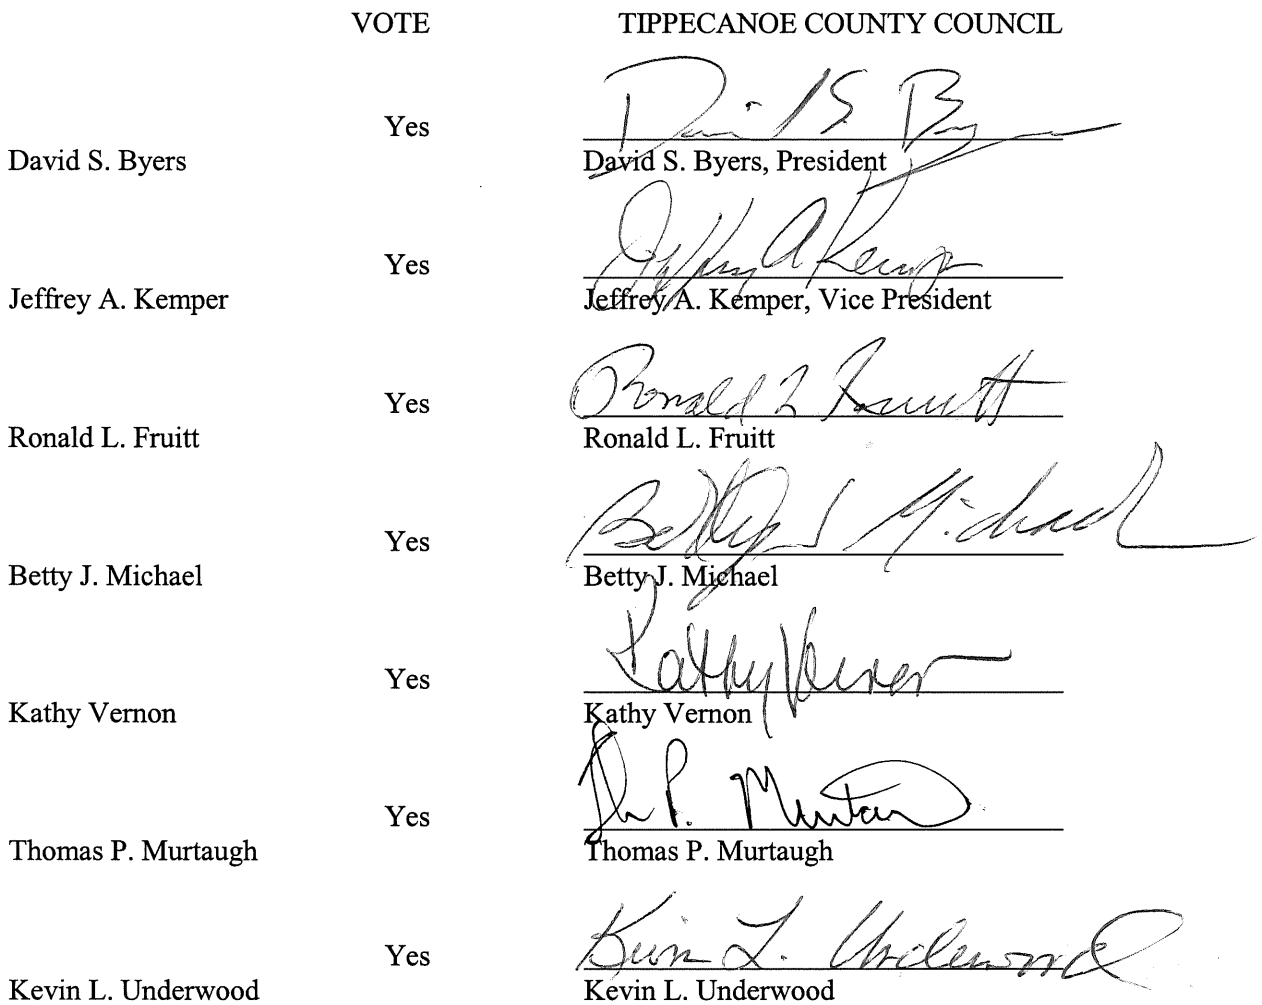 VOTE TIPPECANOE COUNTY COUNCIL
Yes David S. Byers
David S. Byers David S. Byers, President
Yes Jeffrey A Kemper
Jeffrey A. Kemper Jeffrey A. Kemper, Vice President
Yes Ronald L Fruitt
Ronald L. Fruitt Ronald L. Fruitt
Yes Betty J Michael
Betty J. Michael Betty J. Michael
Yes Kathy Vernon
Kathy Vernon Kathy Vernon
Yes P. Murtau
Thomas P. Murtaugh Thomas P. Murtaugh
Yes Kevin L. Underwood
Kevin L. Underwood Kevin L. Underwood